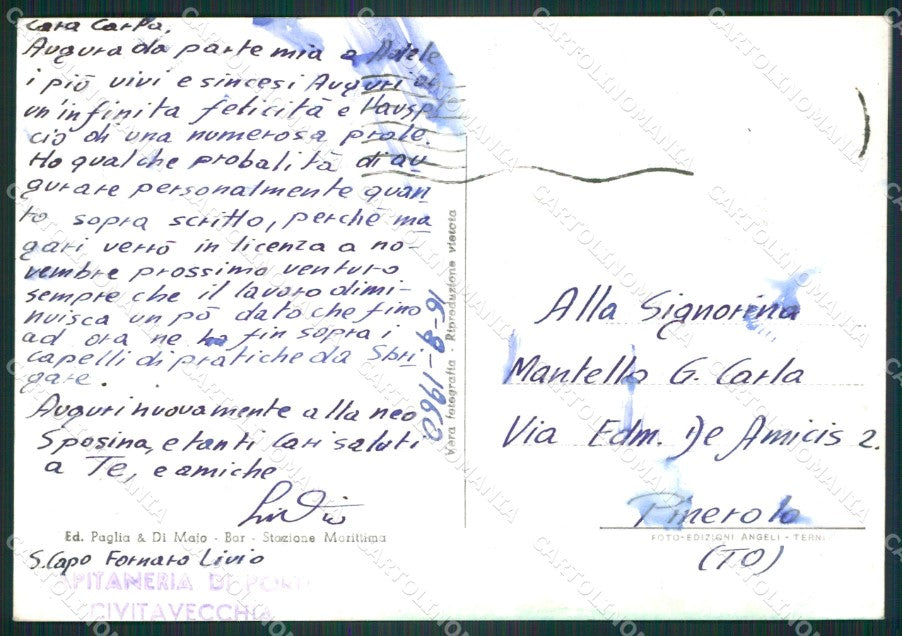 Cara Carla,
Augura da parte mia a Adele
i più vivi e sincesi Auguri di
un'infinita felicità e l'auspi
cio di una numerosa prole.
Ho qualche probalità di au
gurare personalmente quan
to sopra scritto, perchè ma
gari verrò in licenza a no-
vembre prossimo venturo
sempre che il lavoro dimi-
nuisca un pò dato che fino
ad ora ne ho fin sopra i
capelli di pratiche da Sbri
gare.
Auguri nuovamente alla neo
Sposina, e tanti Cari saluti
a Te, e amiche
Livio
Ed. Paglia & Di Maio - Bar - Stazione Marittima
S. Capo Fornaro Livio
CAPITANERIA DI PORTO
CIVITAVECCHIA
Vera fotografia - Riproduzione vietata
16-9-1960
Alla Signorina
Mantello G. Carla
Via Edm. De Amicis 2.
Pinerolo
FOTO-EDIZIONI ANGELI - TERNI
(TO)
CARTOLINOMANIA